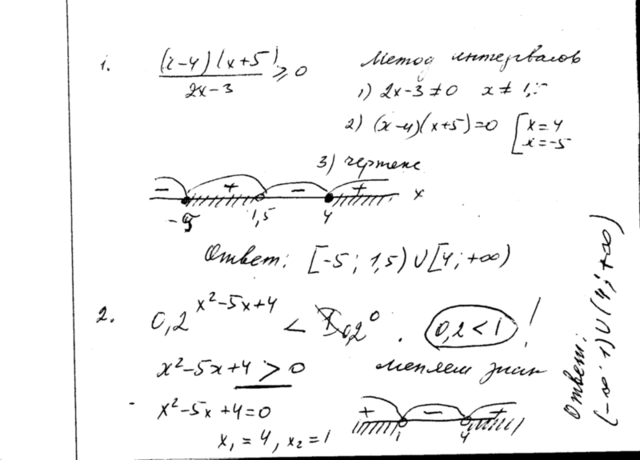 1. (x-4)(x+5) / 2x-3 ≥ 0
Метод интервалов
1) 2x-3≠0 x≠1,5
2) (x-4)(x+5)=0 [x=4 x=-5
3) чертеж
- + - + x
-5 1,5 4
Ответ: [-5; 1,5) ∪ [4; +∞)
2. 0,2^(x²-5x+4) < 0,2⁰. 0,2<1 !
x²-5x+4 > 0 меняем знак
x²-5x+4=0
x₁=4, x₂=1
+ - +
1 4
Ответ:
(-∞; 1) ∪ (4; +∞)